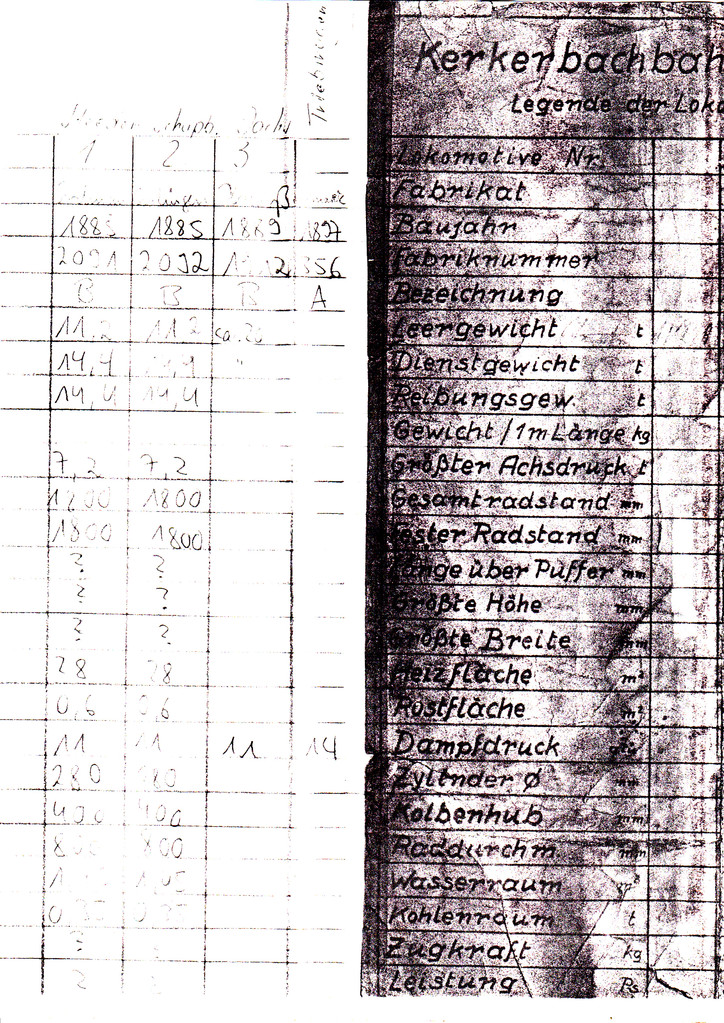 Triebwagen
Kerkerbachbah
Legende der Loko
1 2 3 Lokomotive Nr.
B Fabrikat
1885 1885 1889 1897 Baujahr
2091 2092 356 Fabriknummer
B B B A Bezeichnung
11.2 11.2 ca. 20 Leergewicht t
14,4 " Dienstgewicht t
14,4 14,4 Reibungsgew. t
Gewicht/1m Länge kg
7,2 7,2 Größter Achsdruck t
1800 1800 Gesamtradstand mm
1800 1800 fester Radstand mm
? ? Länge über Puffer mm
? ? Größte Höhe mm
? ? Größte Breite mm
28 28 Heizfläche m²
0,6 0,6 Rostfläche m²
11 11 11 14 Dampfdruck
280 280 Zylinder Ø mm
400 400 Kolbenhub mm
800 800 Raddurchm. mm
Wasserraum m³
Kohlenraum t
? Zugkraft kg
? ? Leistung Ps